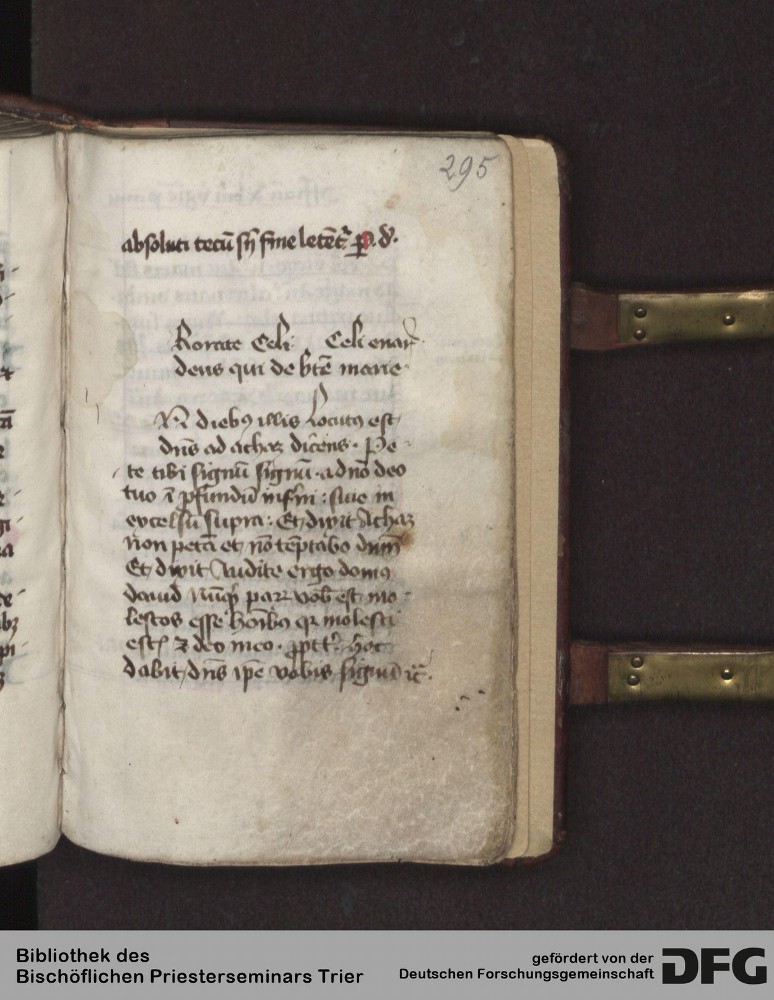 295
absoluti tecū sn̄ fine letēt᷑ p. d.
Rorate Celi Celi enar
deus qui de btē marie
IN diebꝰ illis Locutꝰ est
dn̄s ad achaz dicens. Pe-
te tibi signū signū a dn̄o deo
tuo ī ꝓfundū inf̄ni : siue in
excelsū supra : Et dixit Achaz
Non petā et nō tēptabo dn̄m
Et dixit Audite ergo domꝰ
dauid Nūqͥ parꝝ vob̄ est mo-
lestos esse hōibꝰ qꝛ molesti
estꝭ ⁊ deo meo. ꝓptꝰ hoc
dabit dn̄s ip̄e vobis signū ꝛc̄.
Bibliothek des
Bischöflichen Priesterseminars Trier
gefördert von der
Deutschen Forschungsgemeinschaft DFG